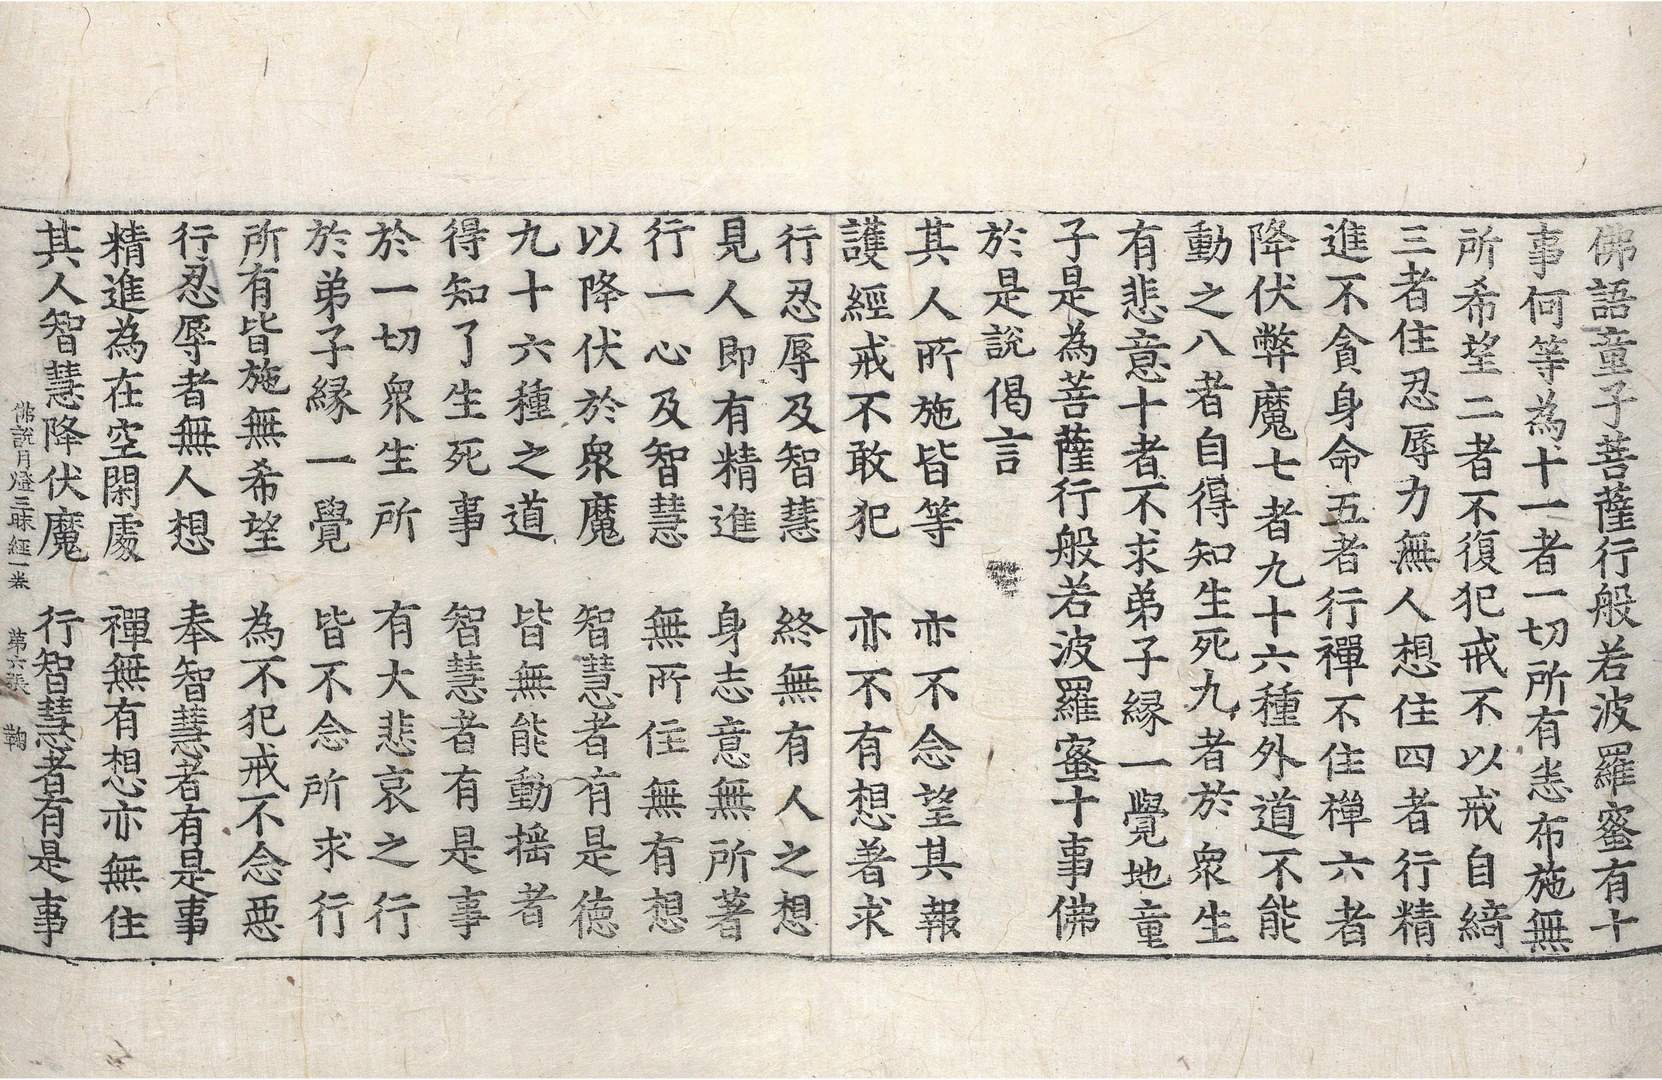 佛語童子菩薩行般若波羅蜜有十
事何等為十一者一切所有恙布施無
所希望二者不復犯戒不以戒自綺
三者住忍辱力無人想住四者行精
進不貪身命五者行禪不住禪六者
降伏弊魔七者九十六種外道不能
動之八者自得知生死九者於衆生
有悲意十者不求弟子緣一覺地童
子是為菩薩行般若波羅蜜十事佛
於是說偈言
其人所施皆等　亦不念望其報
護經戒不敢犯　亦不有想著求
行忍辱及智慧　終無有人之想
見人即有精進　身志意無所著
行一心及智慧　無所住無有想
以降伏於衆魔　智慧者有是德
九十六種之道　皆無能動搖者
得知了生死事　智慧者有是事
於一切衆生所　有大悲哀之行
於弟子緣一覺　皆不念所求行
所有皆施無希望　為不犯戒不念惡
行忍辱者無人想　奉智慧者有是事
精進為在空閑處　禪無有想亦無住
其人智慧降伏魔　行智慧者有是事
佛說月燈三昧經一卷　第六張　鞠